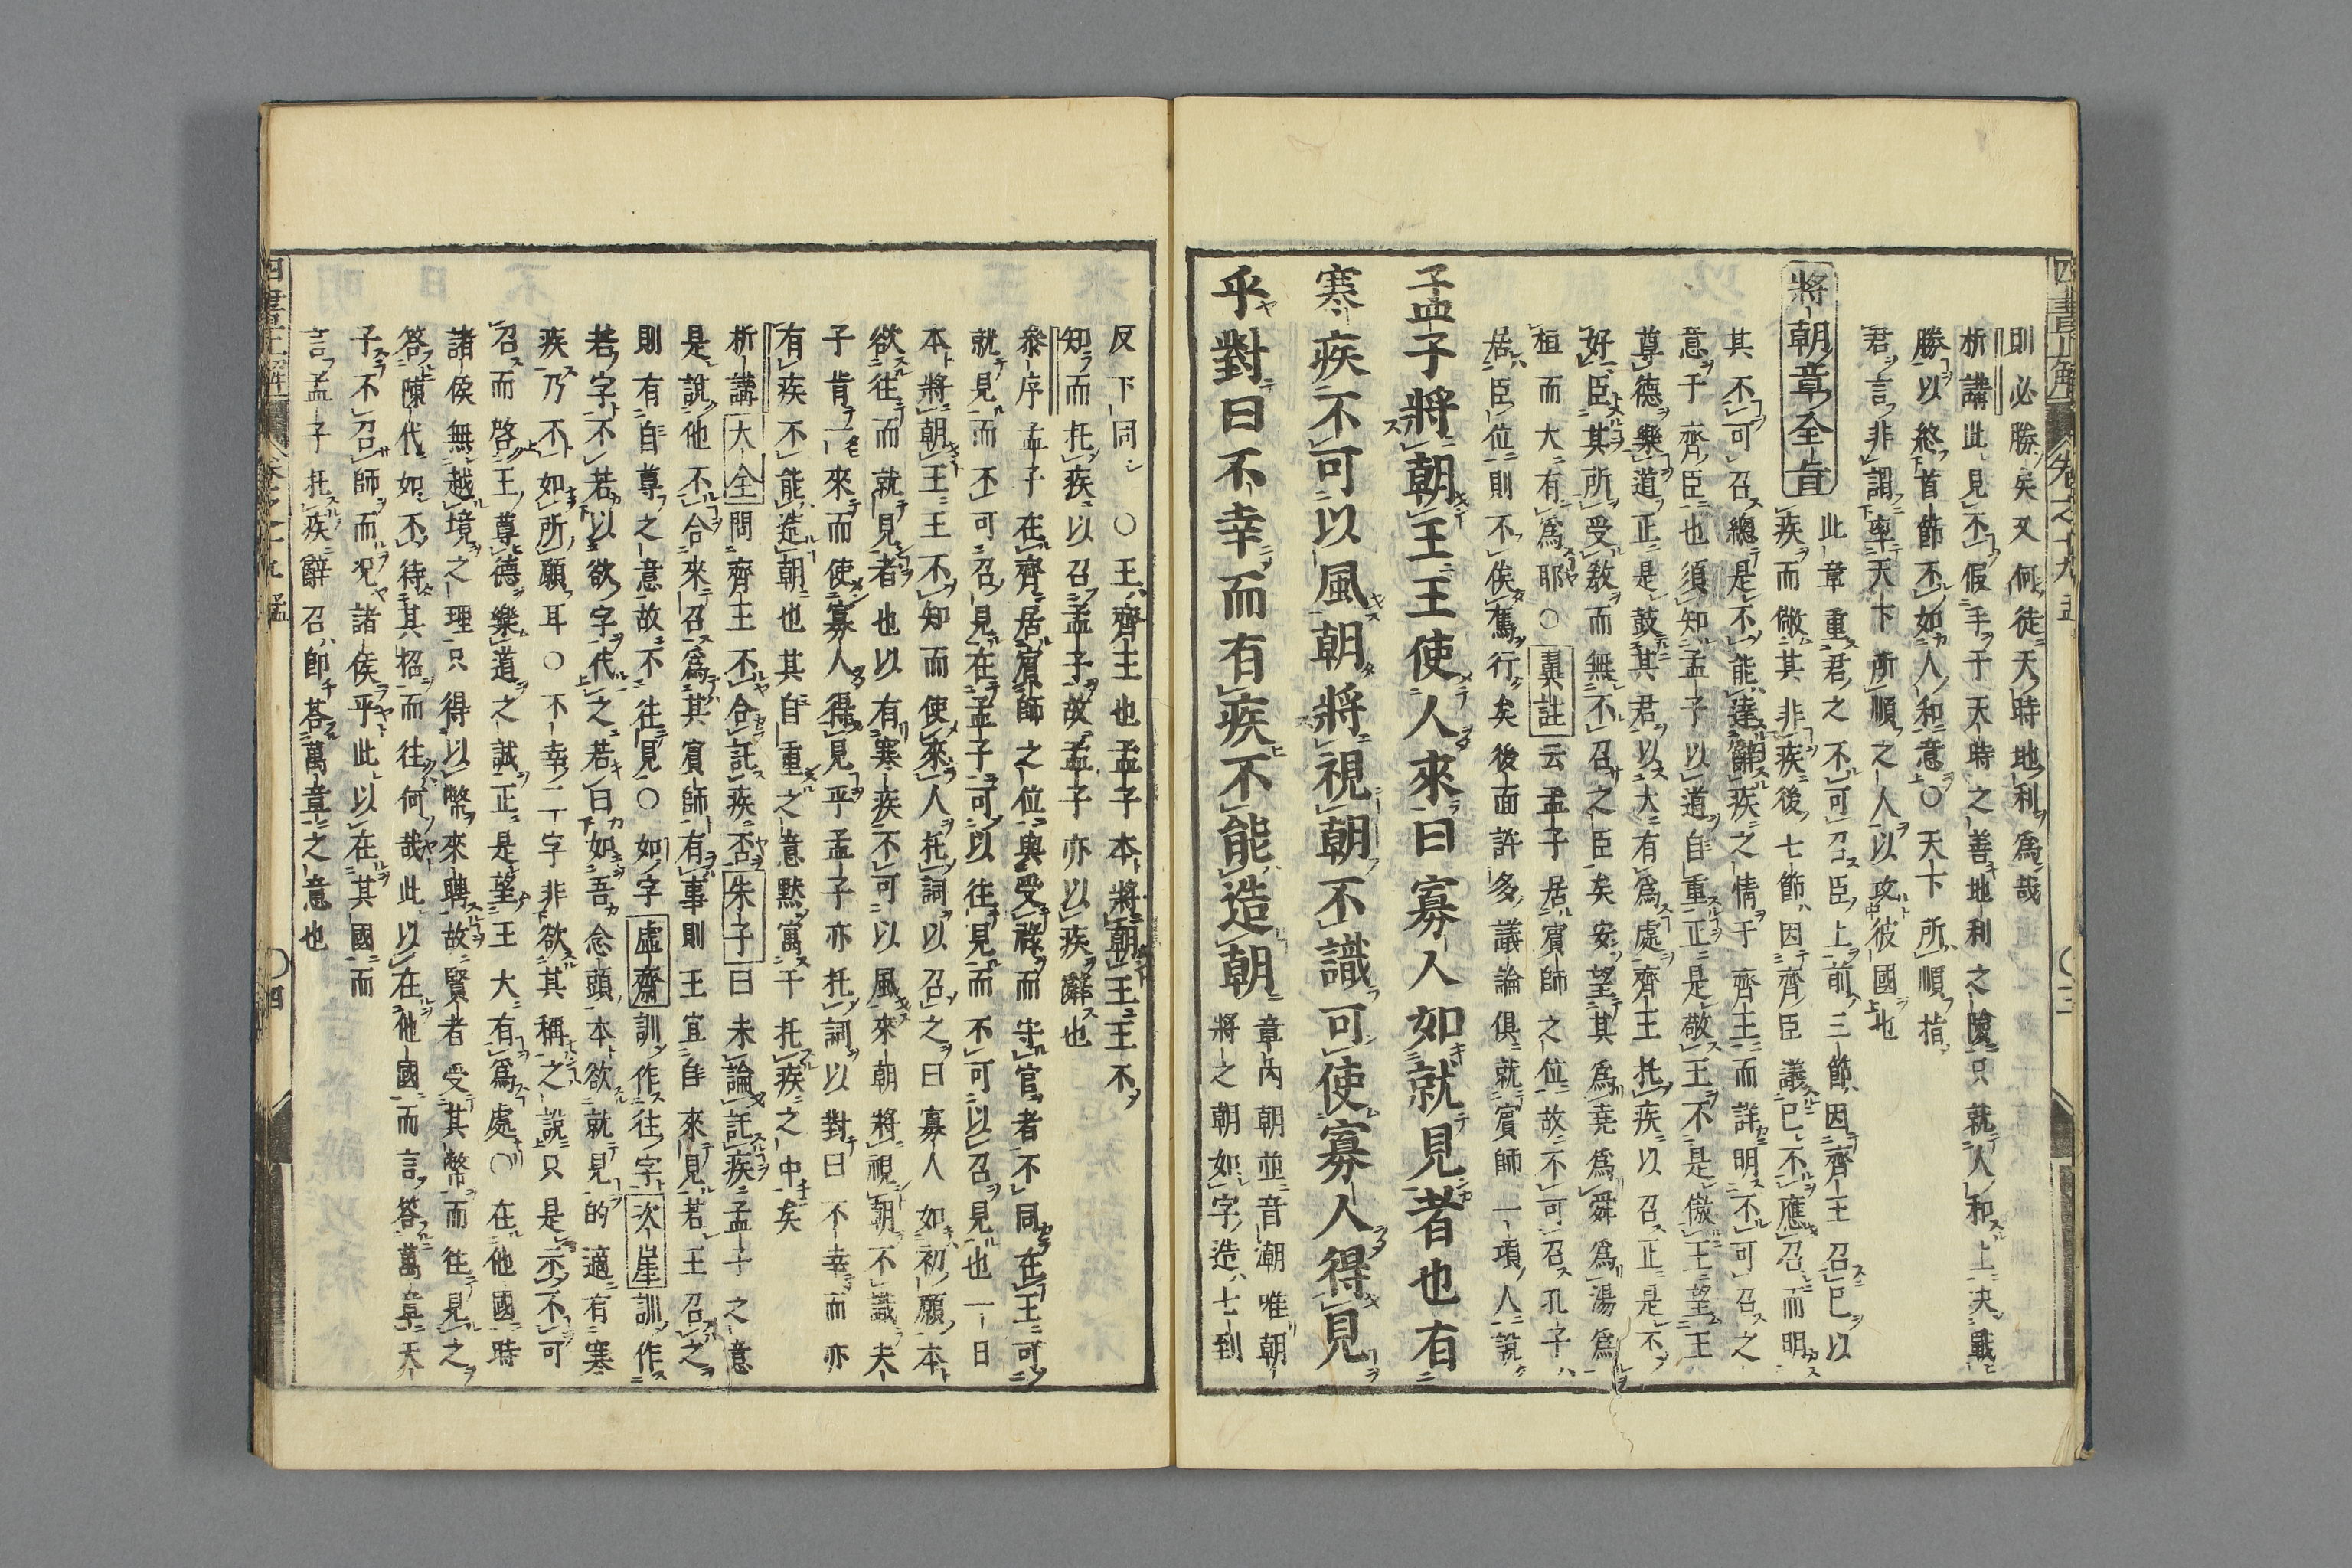 則必勝矣又何徒天時地利爲哉
析講此見不假手于天時之善地利之險只就人和上決戰
勝以終首節不如人和意○天下所順指
君言非謂率天下所順之人以攻彼國也
將朝章全旨
此章重君之不可召臣上前三節因齊王召己以
疾而儆其非疾後七節因齊臣議己不應召而明
其不可召總是不能達辭疾之情于齊王而詳明不可召之
意于齊臣也須知孟子以道自重正是敬王不是傲王望王
尊德樂道正是鼓其君以大有爲處齊王托疾以召正是不
好臣其所受敎而無不召之臣矣安望其爲堯爲舜爲湯爲
桓而大有爲耶○翼註云孟子居賓師之位故不可召孔子
居臣位則不俟駕行矣後面許多議論俱就賓師一項人說
孟子將朝王王使人來曰寡人如就見者也有
寒疾不可以風朝將視朝不識可使寡人得見
乎對曰不幸而有疾不能造朝
章內朝並音潮唯朝
將之朝如字造七到
反下同○王齊王也孟子本將朝王王不
知而托疾以召孟子故孟子亦以疾辭也
叅序孟子在齊居賓師之位與受祿而守官者不同在王可
就見而不可召見在孟子可以往見而不可以召見也一日
本將朝王王不知而使來人托詞以召之曰寡人如初願本
欲往而就見者也以有寒疾不可以風來朝將視朝不識夫
子肯一來而使寡人得見乎孟子亦托詞以對曰不幸而亦
有疾不能造朝也其自重之意默寓于托疾之中矣
析講大全問齊王不合託疾否朱子曰未論託疾孟子之意
是說他不合來召爲其賓師有事則王宜自來見若王召之
則有自尊之意故不往見○如字虛齋訓作往字次崖訓作
若字不若以欲字代之若曰如吾念頭本欲就見的適有寒
疾乃不如所願耳○不幸二字非欲其稱之說只是示不可
召而啓王尊德樂道之誠正是望王大有爲處○在他國時
諸侯無越境之理只得以幣來聘故賢者受其幣而往見之
答陳代如不待其招而往何哉此以在他國而言答萬章天
子不召師而况諸侯乎此以在其國而
言孟子托疾辭召卽答萬章之意也